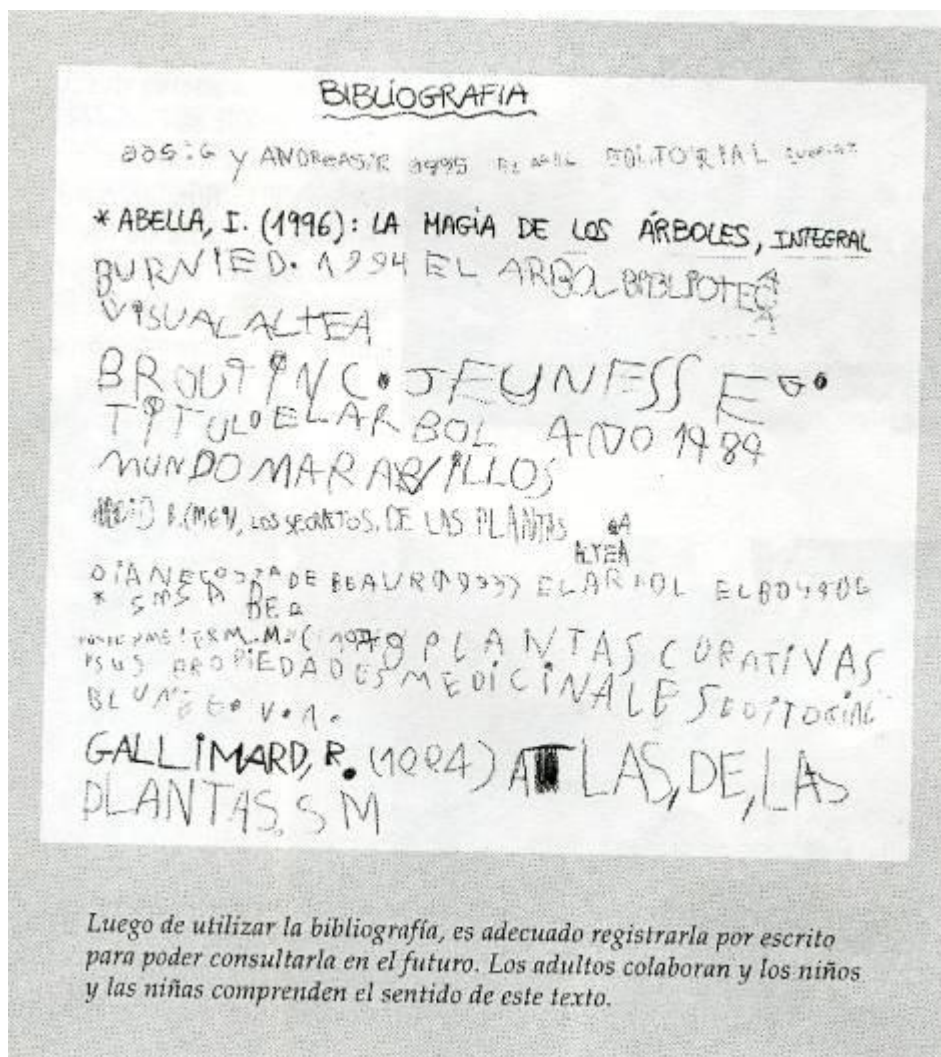 BIBLIOGRAFIA
Y ANDREAS 1995 EDITORIAL
* ABELLA, I. (1996): LA MAGIA DE LOS ÁRBOLES, INTEGRAL
BURNIE D. 1994 EL ARBOL BIBLIOTECA
VISUAL ALTEA
BROUTIN C. JEUNESSE G.
TITULO EL ARBOL AÑO 1989
MUNDO MARAVILLOS
LOS SECRETOS, DE LAS PLANTAS
ALTEA
DIANE COSTA DE BEAUR EL ARBOL
* SM
PLANTAS CURATIVAS
SUS PROPIEDADES MEDICINALES EDITORIAL
BLUME
GALLIMARD, R. (1994) ATLAS, DE, LAS
PLANTAS, SM
Luego de utilizar la bibliografía, es adecuado registrarla por escrito
para poder consultarla en el futuro. Los adultos colaboran y los niños
y las niñas comprenden el sentido de este texto.